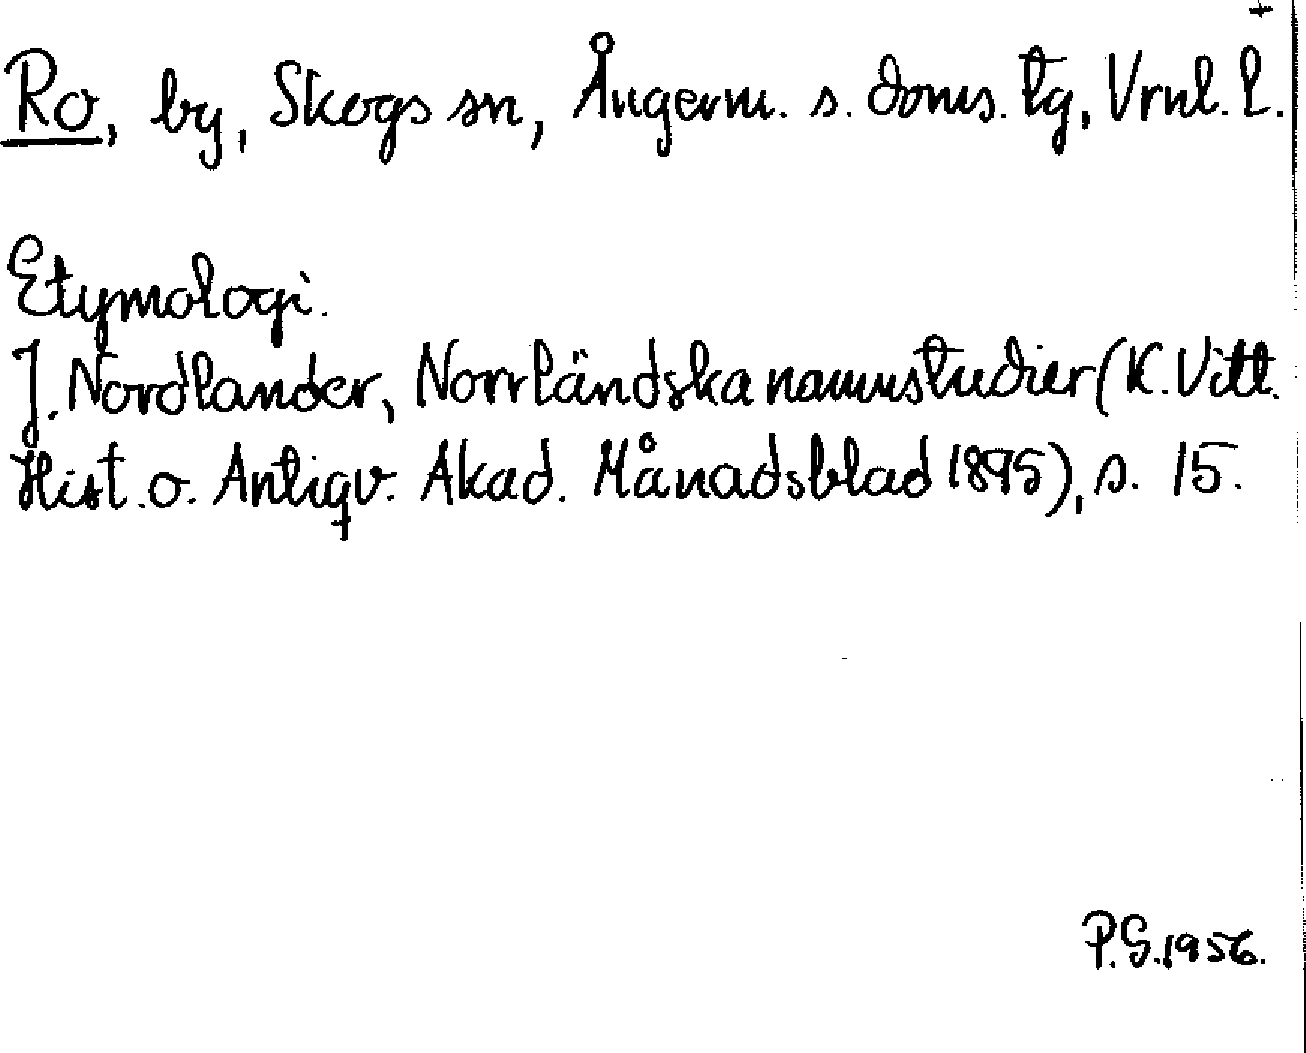 +
Ro, by, Skogs sn, Ångerm. s. doms. tg, Vrnl. l.
Etymologi.
J. Nordlander, Norrländska namnstudier (K. Vitt.
Hist. o. Antiqv. Akad. Månadsblad 1895), s. 15.
P.G. 1956.